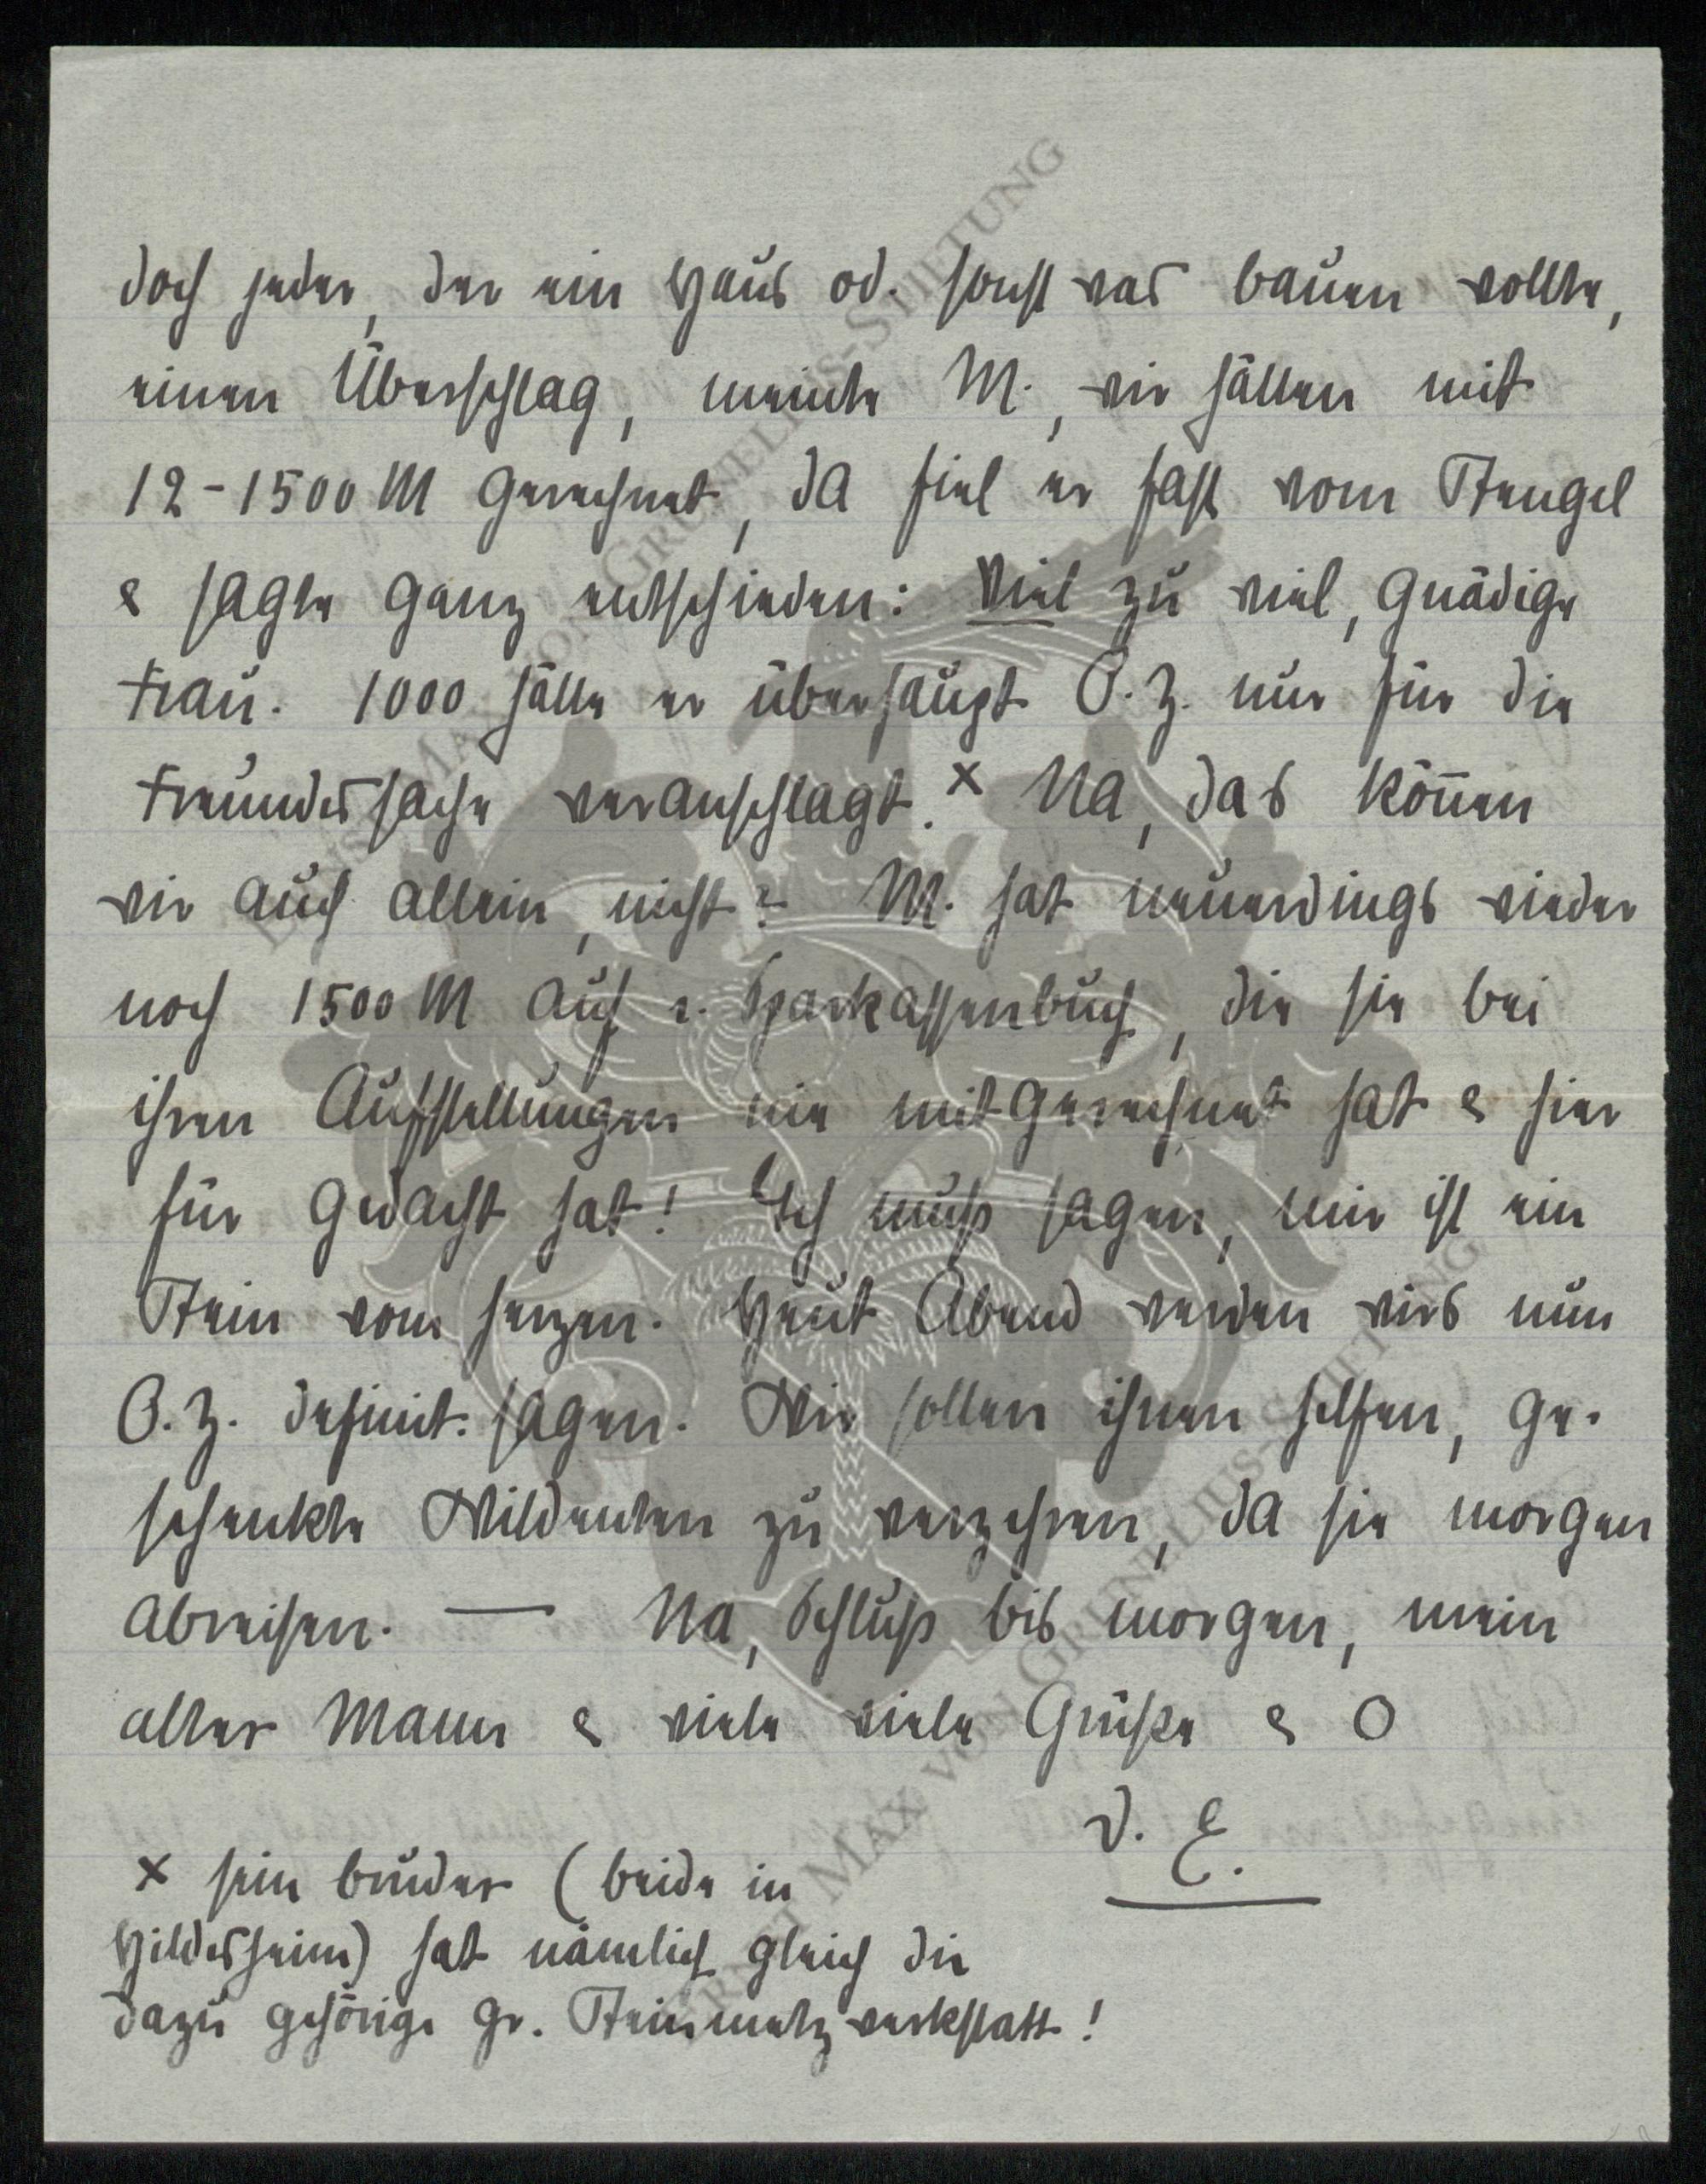 doch jeder, der ein Haus od. sonst was bauen wollte,
einen Überschlag, meinte M., wir hätten mit
12-1500 M gerechnet, da fiel er fast vom Stengel
& sagte ganz entschieden: Viel zu viel, gnädige
Frau. 1000 hätte er überhaupt O. Z. nur für die
Freundessache veranschlagt. x Na, das können
wir auch allein, nicht? M. hat neuerdings wieder
noch 1500 M auf e. Sparkassenbuch, die sie bei
ihren Aufstellungen nie mitgerechnet hat & hier
für gedacht hat! Ich muß sagen, mir ist ein
Stein vom Herzen. Heut Abend werden wirs nun
O. Z. definit. sagen. Wir sollen ihnen helfen, ge-
schenkte Wildenten zu verzehren, da sie morgen
abreisen. — Na, Schluß bis morgen, mein
alter Mann & viele viele Grüße & O
D. E.
x sein Bruder (beide in
Hildesheim) hat nämlich gleich die
dazu gehörige gr. Steinmetzwerkstatt!
ERNST MAX VON GRUNELIUS-STIFTUNG
ERNST MAX VON GRUNELIUS-STIFTUNG